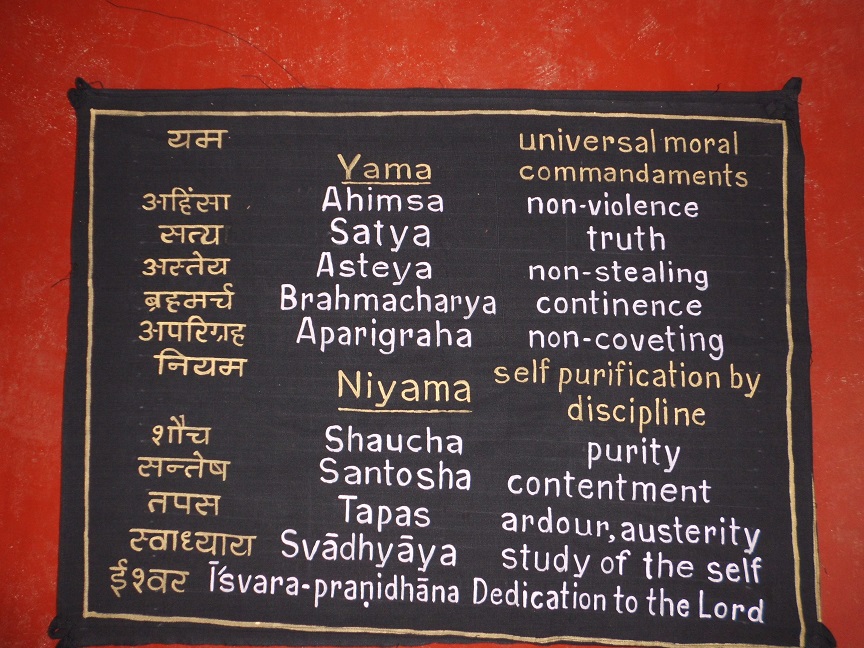 यम universal moral
Yama commandaments
अहिंसा Ahimsa non-violence
सत्य Satya truth
अस्तेय Asteya non-stealing
ब्रहमर्च Brahmacharya continence
अपरिग्रह Aparigraha non-coveting
नियम self purification by
Niyama discipline
शौच Shaucha purity
सन्तेष Santosha contentment
तपस Tapas ardour, austerity
स्वाध्याय Svādhyāya study of the self
ईश्वर Īśvara-praṇidhāna Dedication to the Lord